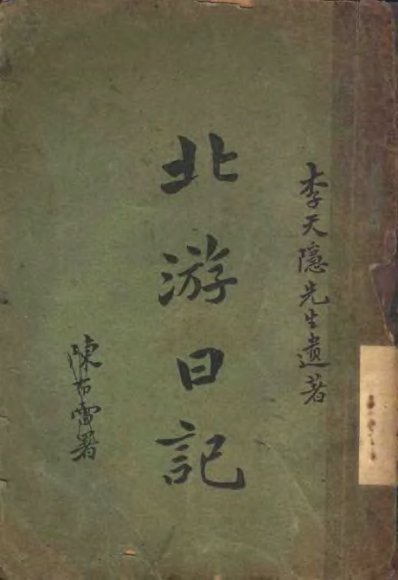 李天隱先生遺著
北游日記
陳布雷署